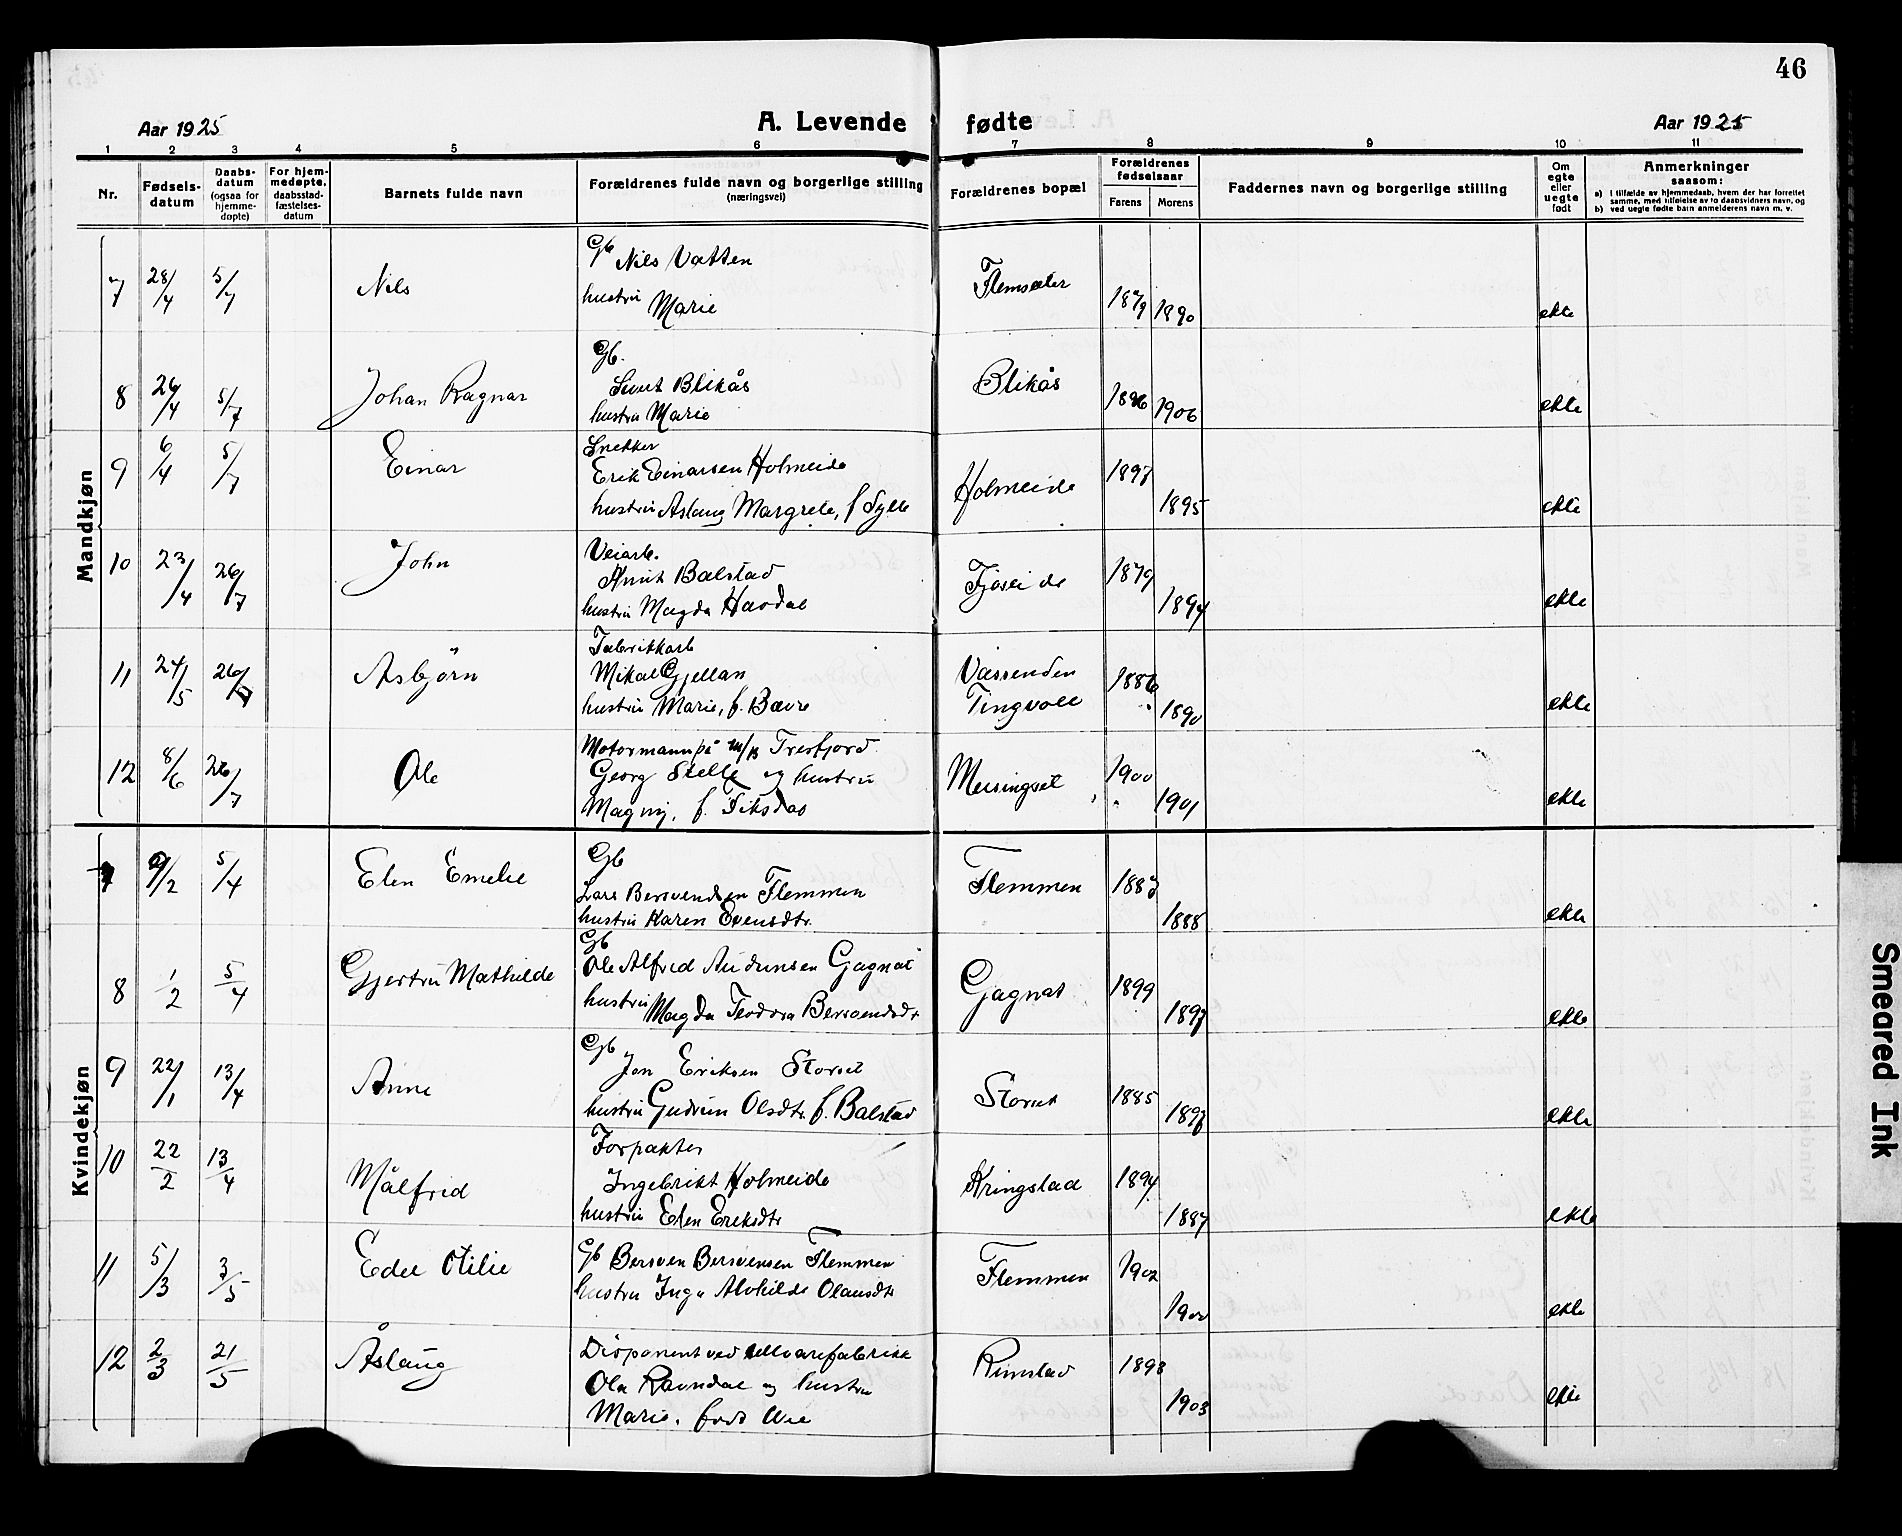 46
Aar 1925
A. Levende fødte
Aar 1925
1 2 3 4 5 6 7 8 9 10 11
Nr.
Fødsels-
datum
Daabs-
datum
(ogsaa for
hjemme-
døpte)
For hjem-
medøpte,
daabsstad-
fæstelses-
datum
Barnets fulde navn
Forældrenes fulde navn og borgerlige stilling
(næringsvei)
Forældrenes bopæl
Forældrenes
fødselsaar
Farens Morens
Faddernes navn og borgerlige stilling
Om
egte
eller
uegte
født
Anmerkninger
saasom:
a) i tilfælde av hjemmedaab, hvem der har forrettet
samme, med tilføielse av to daabsvidners navn, og
b) ved uegte fødte barn anmelderens navn m. v.
Mandkjøn
7 28/4 5/7 Nils
Gb Nils Vatten
hustru
Marie
1879 1890 ekte
8 26/4 5/7 Johan Ragnar
Gb.
Sivert Blikås
hustru Marie
Blikås 1896 1906 ekte
9 6/4 5/7 Einar
Snekker
Erik Einarsen Holmeide
hustru Aslaug Margrete, f Sylte
Holmeide 1897 1895 ekte
10 23/4 26/7 John
Veiarb.
Knut Balstad
hustru Magda Havdal
1879 1894 ekte
11 24/5 26/7 Asbjörn
Fabrikkarb
Mikal Gjellan
hustru Marie, f. Bævre
Vassenden
Tingvoll
1886 1890 ekte
12 8/6 26/7 Ole
Motormann på m/k Tresfjord
Georg Stelle og hustru
Magny, f. Fiksdal
1900 1901 ekte
Kvindekjøn
7 9/2 5/4 Elen Emelie
Gb
Lars Bersvendsen Flemmen
hustru Karen Evensdtr.
Flemmen 1887 1888 ekte
8 1/2 5/4 Gjertru Mathilde
Gb
Ole Alfred Audunsen Gagnat
hustru
Magda Teodora Bersvendsdtr
Gagnat 1899 1897 ekte
9 22/1 13/4 Anne
Gb Jon Eriksen Storset
hustru Gudrun Olsdtr. f. Balstad
Storset 1885 ekte
10 22/2 13/4 Målfrid
Forpakter
Ingebrikt Holmeide
hustru Elen Eriksdtr
Kringstad 1894 1887 ekte
11 5/3 3/5 Edel Otilie
Gb Bersven Bersvensen Flemmen
hustru Inga Alvhilde Olausdtr
Flemmen 1902 1900 ekte
12 2/3 21/5 Åslaug
Disponent ved ullvarefabrikk
Ola Ravndal og hustru
Marie, født Wee
Rimstad 1898 1903 ekte
Smeared Ink